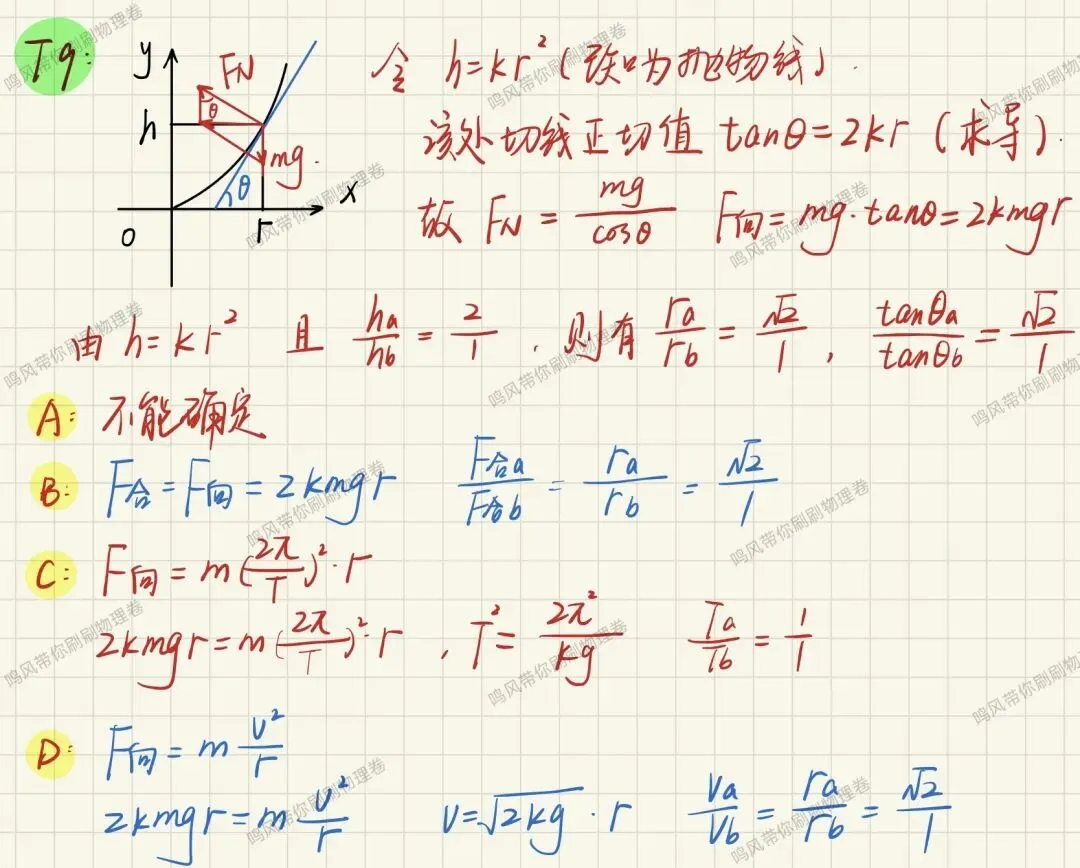 T9:
y
FN
θ
h
mg.
θ
x
o
r
令 h=kr²(缺口为抛物线).
该处切线正切值 tanθ=2kr (求导).
故 FN = mg/cosθ F向=mg·tanθ=2kmgr
由 h=kr² 且 ha/hb = 2/1 , 则有 ra/rb = √2/1 , tanθa/tanθb = √2/1
A: 不能确定
B: F合=F向=2kmgr F合a/F合b = ra/rb = √2/1
C: F向=m(2π/T)²·r
2kmgr=m(2π/T)²·r , T²= 2π²/kg Ta/Tb = 1/1
D: F向=m v²/r
2kmgr=m v²/r v=√2kg · r va/vb = ra/rb = √2/1
鸣风带你刷刷物理卷